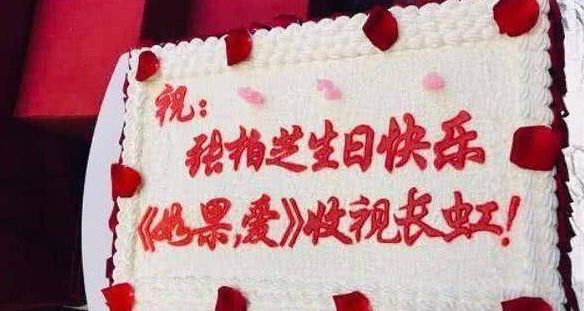 祝：
张柏芝生日快乐
《如果,爱》收视长虹！